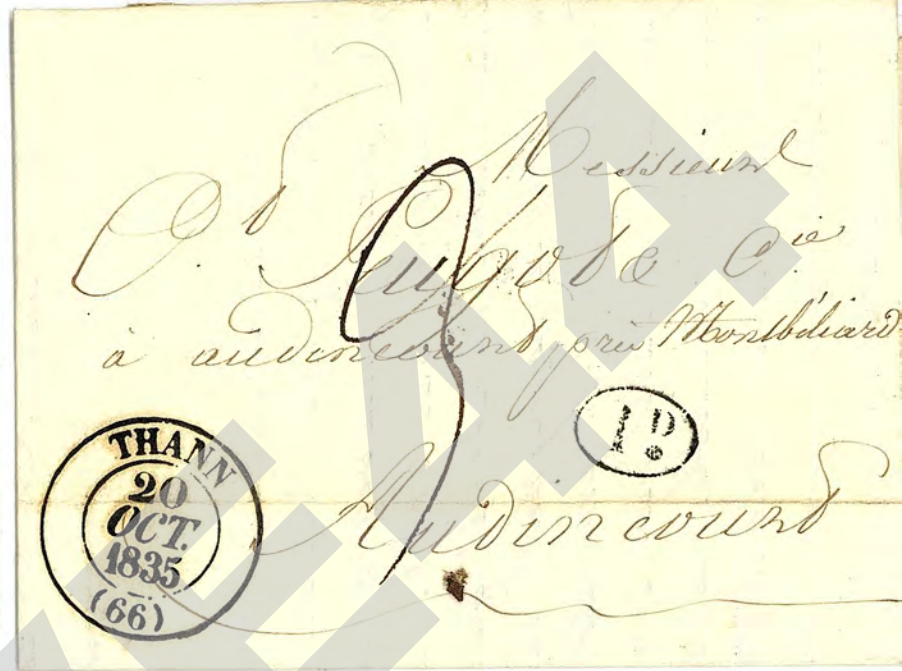 Messieurs
Peugeot & Cie
à audincourt près Montbéliard
1 D.
Audincourt
THANN
20
OCT.
1835
(66)